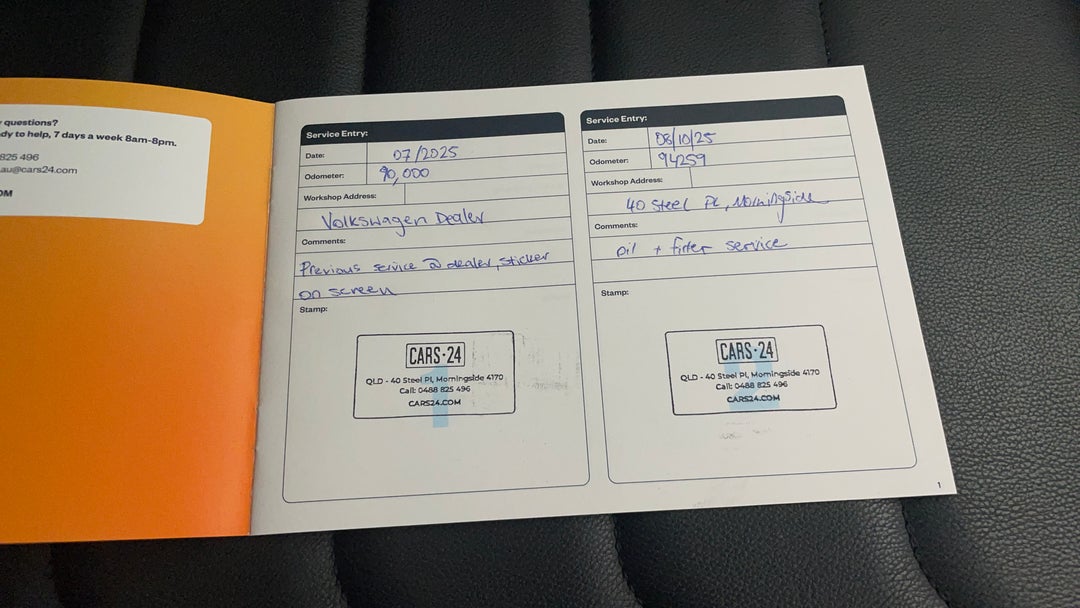 questions?
dy to help, 7 days a week 8am-8pm.
825 496
au@cars24.com
OM
Service Entry:
Date: 07/2025
Odometer: 90,000
Workshop Address:
Volkswagen Dealer
Comments:
Previous service @ dealer, sticker
on screen
Stamp:
CARS·24
QLD - 40 Steel Pl, Morningside 4170
Call: 0488 825 496
CARS24.COM
1
Service Entry:
Date: 08/10/25
Odometer: 94259
Workshop Address:
40 Steel PL, Morningside
Comments:
oil + filter service
Stamp:
CARS·24
QLD - 40 Steel Pl, Morningside 4170
Call: 0488 825 496
CARS24.COM
1